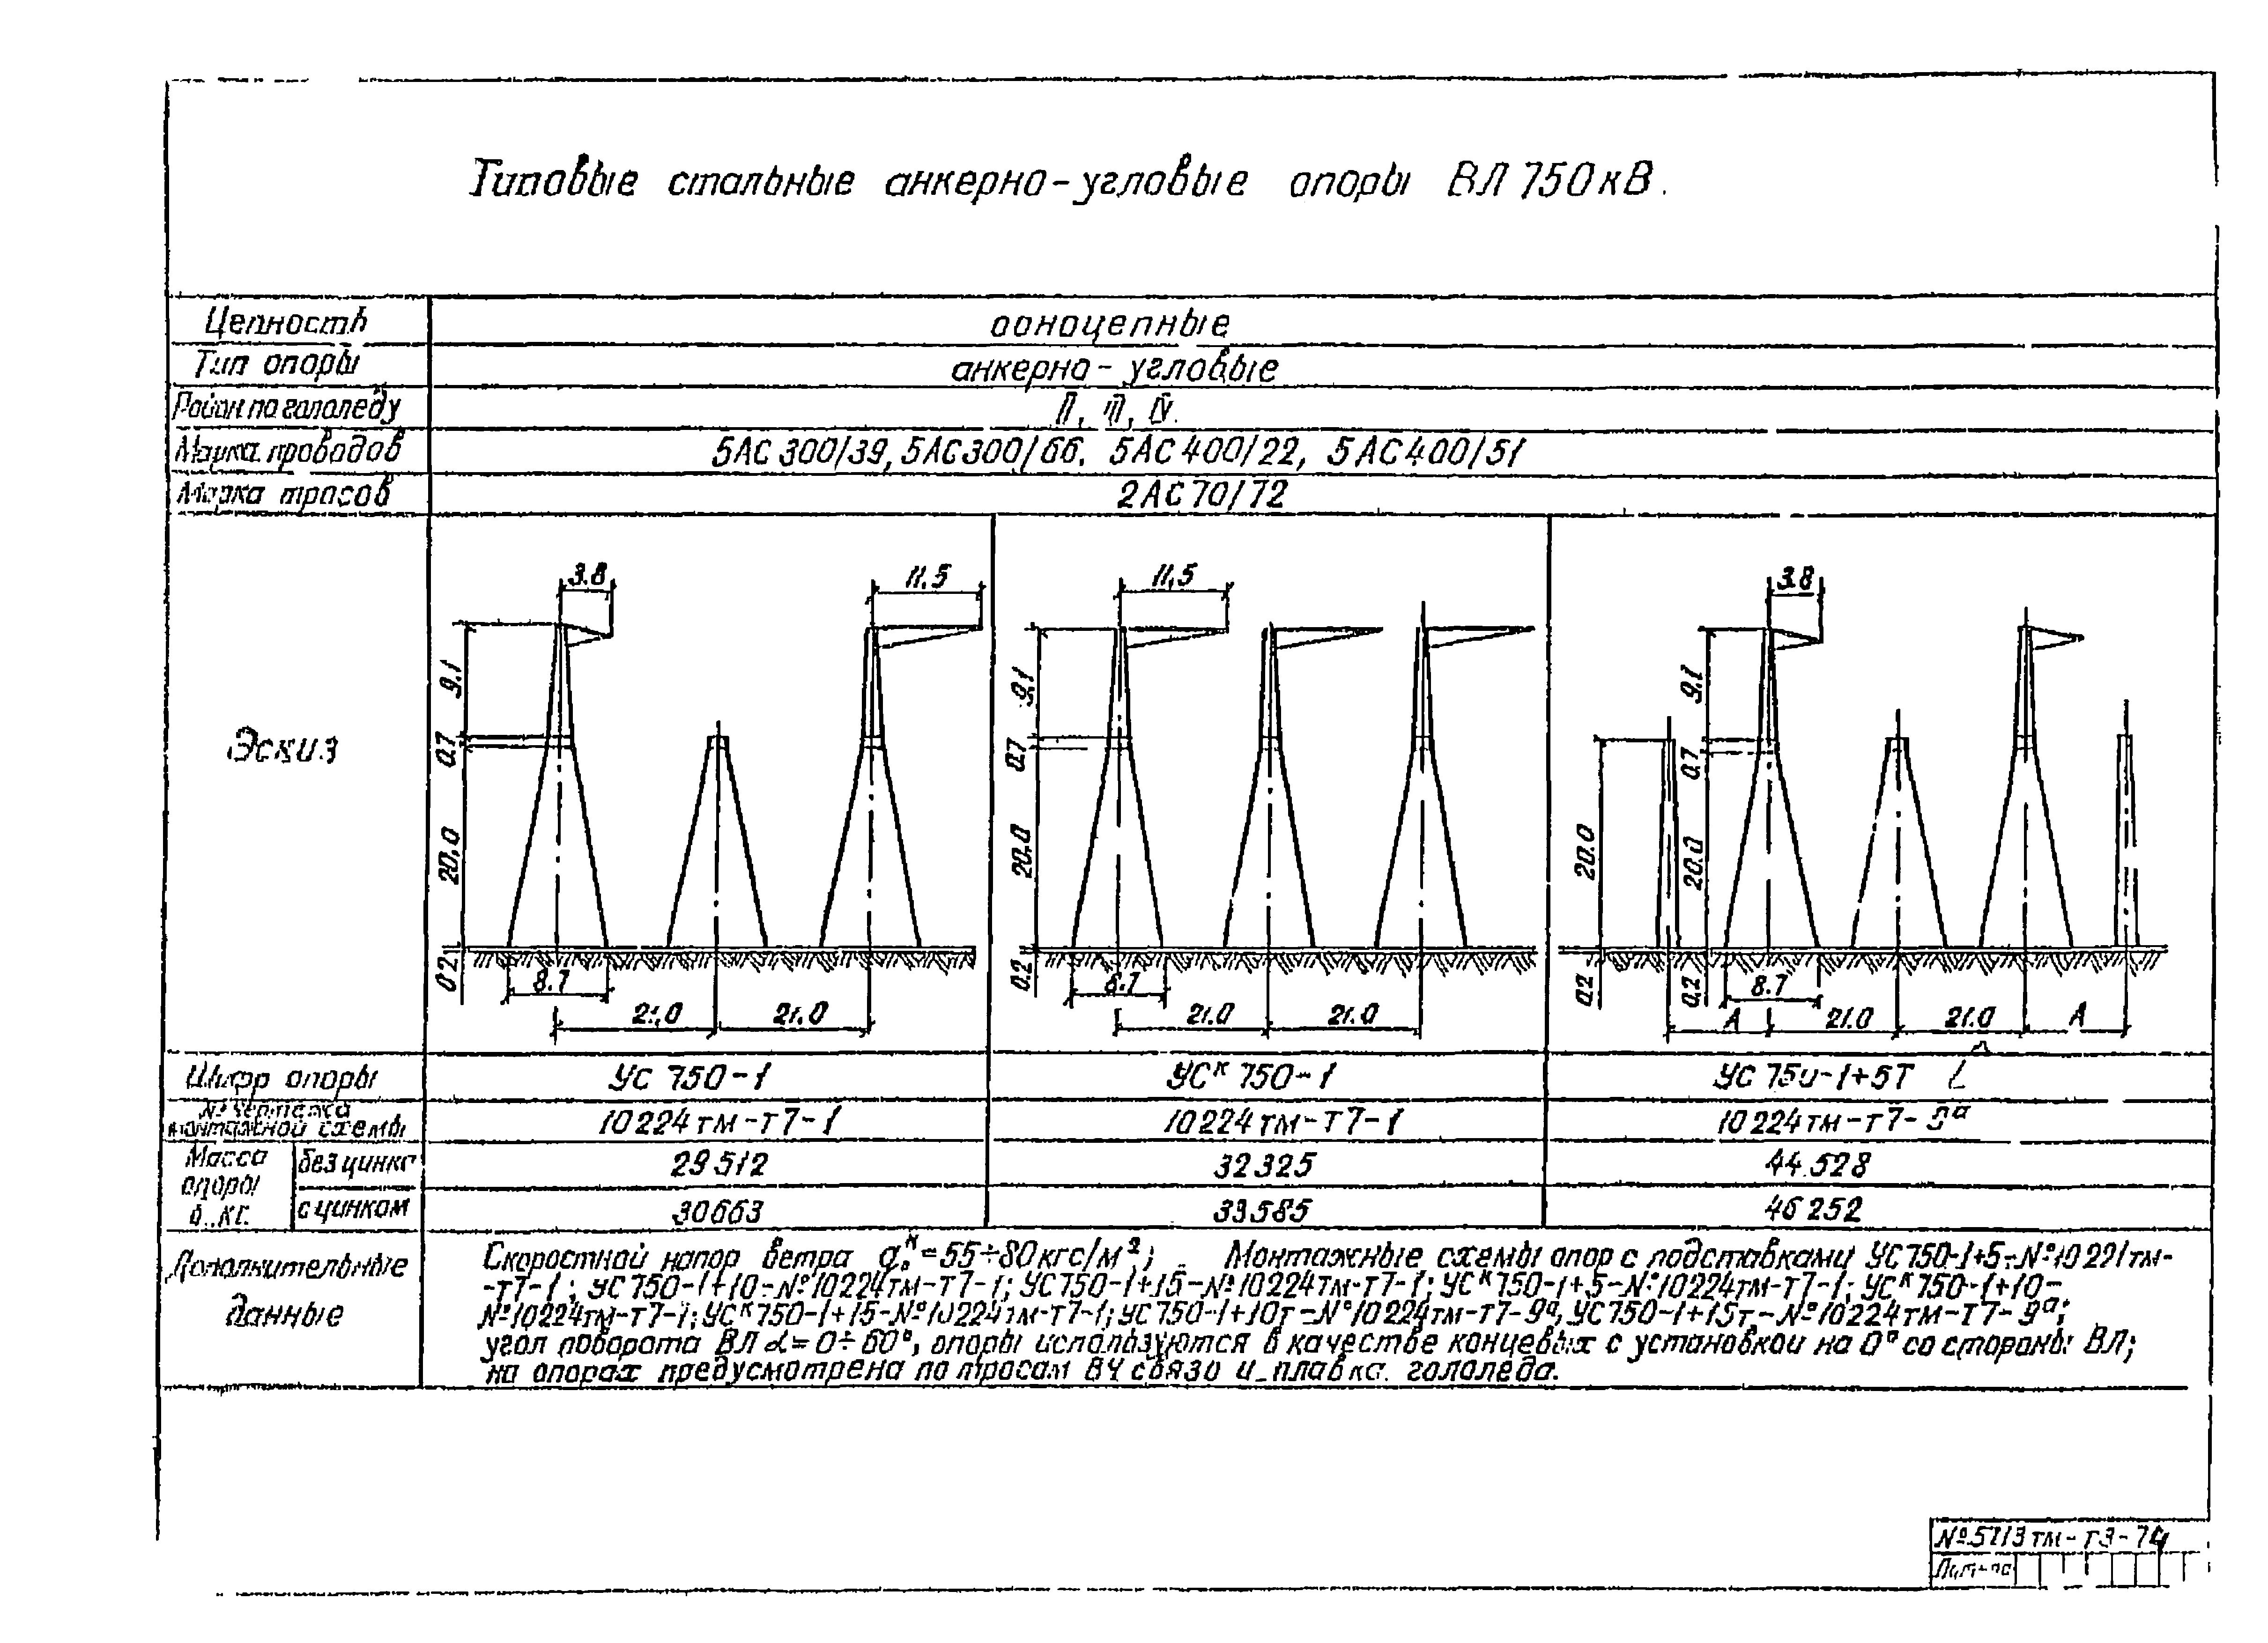 Типовые стальные анкерно-угловые опоры ВЛ 750кВ.
Цепность одноцепные
Тип опоры анкерно-угловые
Район по гололеду II, III, IV.
Марка проводов 5АС300/39, 5АС300/66, 5АС400/22, 5АС400/51
Марка тросов 2АС70/72
Эскиз
3.8 11.5 11,5 3.8
9.1 9,1 9.1
0,7 0,7 0.7
20,0 20.0 20.0 20.0
0.2 0.2 0.2 0.2
8.7 8.7 8.7
21,0 21.0 21.0 21.0 А 21.0 21.0 А
Шифр опоры УС 750-1 УСᴷ 750-1 УС 750-1+5Т
№ чертежа
монтажной схемы 10224тм-т7-1 10224тм-т7-1 10224тм-т7-9ᵃ
Масса опоры в кг. без цинка 29512 32325 44.528
с цинком 30663 33585 46252
Дополнительные данные
Скоростной напор ветра q₀ᴴ=55÷80кгс/м²; Монтажные схемы опор с подставками УС750-1+5-№10221тм-
-т7-1; УС750-1+10-№10224тм-т7-1; УС750-1+15-№10224тм-т7-1; УСᴷ750-1+5-№10224тм-т7-1; УСᴷ750-1+10-
№10224тм-т7-1; УСᴷ750-1+15-№10224тм-т7-1; УС750-1+10т-№10224тм-т7-9ᵃ, УС750-1+15т-№10224тм-т7-9ᵃ;
угол поворота ВЛ α=0÷60°, опоры используются в качестве концевых с установкой на 0° со стороны ВЛ;
на опорах предусмотрена по тросам ВЧ связь и плавка гололеда.
№5713тм-т3-74